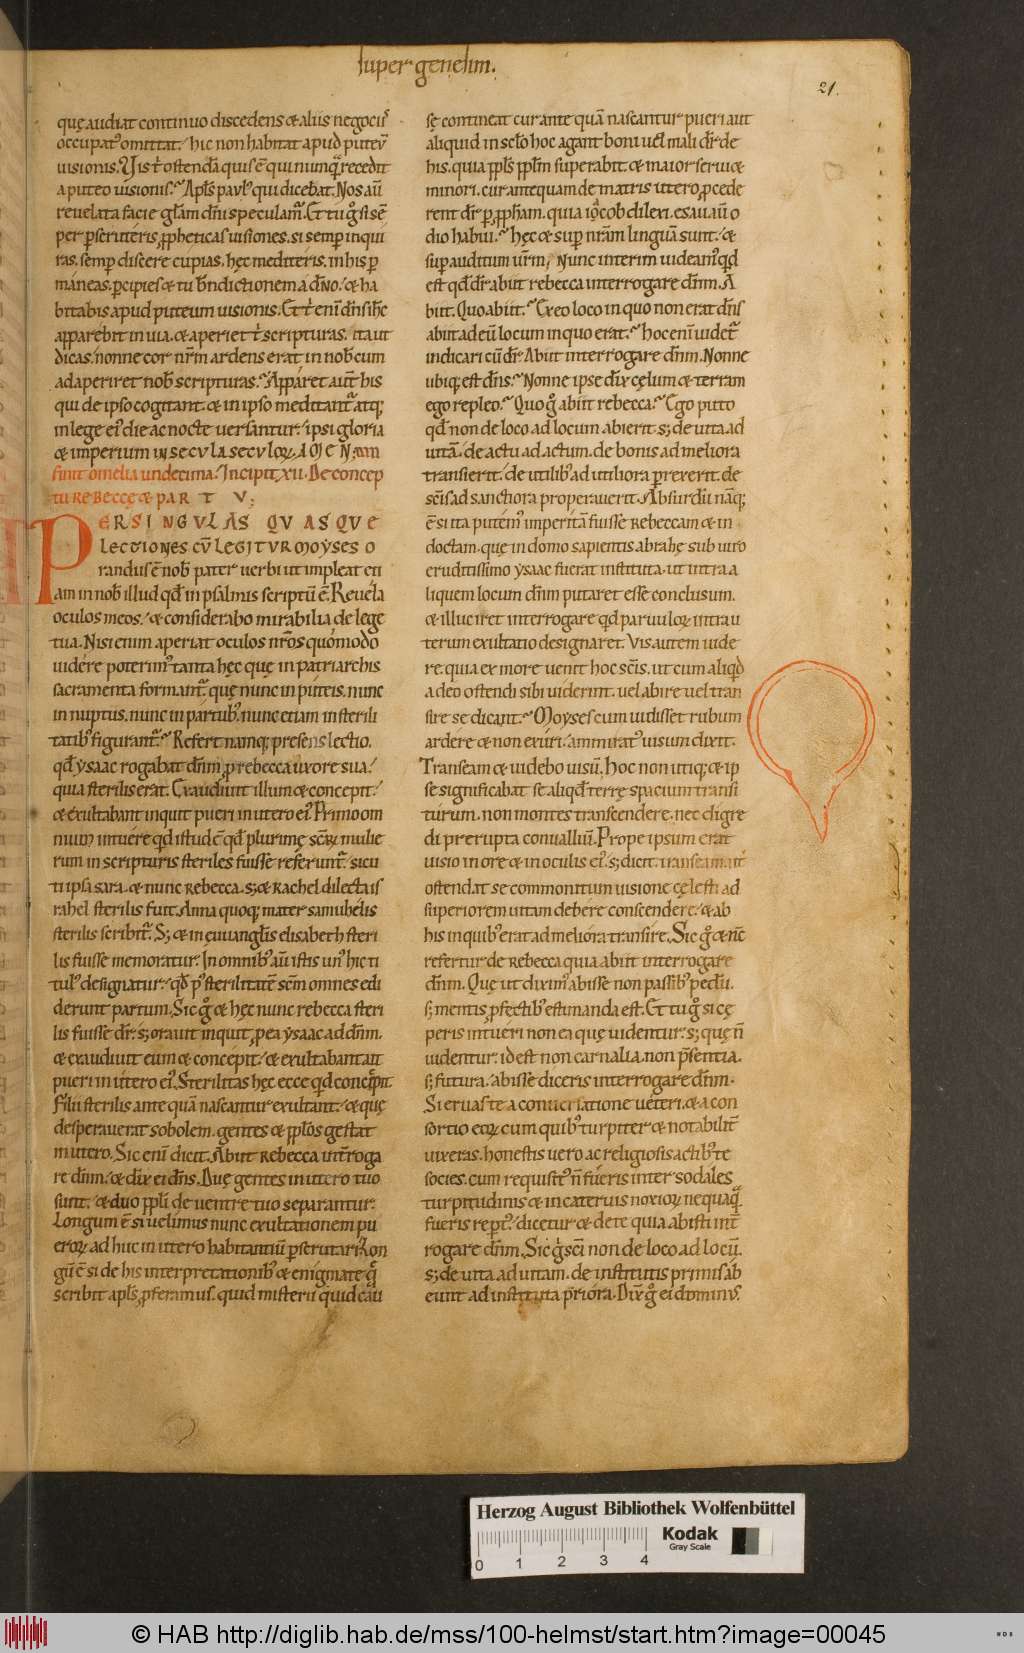 super genesim.
21.
quę audiat continuo discedens & aliis negociis
occupatus omittat. hic non habitat apud puteū
uisionis. Vis t̄ ostendā quis ē qui nunquā recedit
a puteo uisionis? Apłs paulus qui dicebat. Nos aū
reuelata facie głam dn̄i speculamur. Et tu g̊ si sē
per pscruteris ppheticas uisiones. si semp inqui
ras. semp discere cupias. hęc mediteris. in his p
maneas. pcipies & tu bn̄dictionem á dn̄o. & ha
bitabis apud puteum uisionis. Et t̄ enī dn̄s ih̄c
apparebit in uia. & aperiet t̄ scripturas. ita ut
dicas. nonne cor nr̄m ardens erat in nob̄ cum
adaperiret nob̄ scripturas? Apparet aut̄ his
qui de ipso cogitant. & in ipso meditantur atq;
in lege ei' die ac nocte uersantur. ipsi gloria
& imperium in secula seculoꝝ. AMEN.
finit omelia undecima. Incipit xii. De concep
tu Rebeccę & part u.
PER SINGULAS QUASQUE
lectiones cū legitur Moyses o
randus ē nob̄ pater uerbi ut impleat eti
am in nob̄ illud qđ in psalmis scriptū ē. Reuela
oculos meos. & considerabo mirabilia de lege
tua. Nisi enim aperiat oculos nr̄os quomodo
uidére poterim' tanta hęc quę in patriarchis
sacramenta formantur. quę nunc in puteis. nunc
in nuptus. nunc in partub' nunc etiam in sterili
tatib' figurantur? Refert namq; presens lectio.
qđ ysaac rogabat dn̄m p rebecca uxore sua.
quia sterilis erat. Exaudiuit illum & concepit.
& exultabant inquit pueri in utero ei'. Primo om
nium intuére qđ istud ē qđ plurimę scārꝝ mulie
rum in scripturis steriles fuisse referunt̄. sicu
ti ipsa sara. & nunc Rebecca. s; & Rachel dilecta is
rahel sterilis fuit. Anna quoq; mater samuhélis
sterilis scribit̄. S; & in euuangłis elisabeth steri
lis fuisse memoratur. In omnib' aū istis un' hic ti
tulus designatur. qđ p' sterilitatē scm̄ omnes edi
derunt partum. Sic g̊ & hęc nunc rebecca steri
lis fuisse dr̄. s; orauit inquit p ea ysaac ad dn̄m.
& exaudiuit eum & concepit. & exultabant ait
pueri in utero ei'. Sterilitas hęc ecce qđ concępit
Filii sterilis ante quā nascantur exultant. & quę
desperauerat sobolem. gentes & pplos gestat
in utero. Sic enī dicit. Abiit Rebecca int̄roga
re dn̄m. & dix̄ ei dn̄s. Duę gentes in utero tuo
sunt. & duo ppłi de uentre tuo separantur.
Longum ē si uelimus nunc exultationem pu
eroꝝ ad huc in utero habitantiū pscrutari. Lon
gū ē si de his interpretationib' & enigmate q̄
scribit apłs pferamus. quid misterii quid cau
sę contineat cur ante quā nascantur pueri aut
aliquid in scło hoc agant boni uel mali dr̄ de
his. quia ppls pplm superabit. & maior seruiet
minori. cur antequam de matris utero pcede
rent dr̄ p ppham. quia iacob dilexi. esau aū o
dio habui. hęc & sup nr̄am linguā sunt. &
sup auditum ur̄m. Nunc interim uideam' qđ
est qđ dr̄ abiit rebecca interrogare dn̄m. A
biit. Quo abiit? Ex eo loco in quo non erat dn̄s
abiit ad eū locum in quo erat? hoc enī uidet̄
indicari cū dr̄. Abiit interrogare dn̄m. Nonne
ubiq; est dn̄s? Nonne ipse dix̄ cęlum & terram
ego repleo? Quo g̊ abiit rebecca? Ego puto
qđ non de loco ad locum abierit. s; de uita ad
uitā. de actu ad actum. de bonis ad meliora
transierit. de utilib' ad utiliora prexerit. de
sc̄is ad sanctiora properauerit. Absurdū namq;
ē si ita putem' imperitā fuisse Rebeccam & in
doctam. quę in domo sapientis abrahę sub uiro
eruditissimo ysaac fuerat instituta. ut intra a
liquem locum dn̄m putaret esse conclusum.
& illuc iret interrogare qđ paruuloꝝ intra u
terum exultatio designaret. Vis autem uide
re. quia ex more uenit hoc sc̄is. ut cum aliqđ
a deo ostendi sibi uiderint. uel abire uel tran
sire se dicant? Moyses cum uidisset rubum
ardére & non exúri. ammirat' uisum dixit.
Transeam & uidebo uisū. Hoc non utiq; & ip
se significabat se aliqđ terrę spacium transi
turum. non montes transcendere. nec digre
di prerupta conualliū. Prope ipsum erat
uisio in ore & in oculis ei'. s; dicit. transeam. ut
ostendat se commonitum uisione cęlesti ad
superiorem uitam debére conscendere. & ab
his in quib' erat ad melióra transire. Sic g̊ & nc̄
refertur de Rebecca quia abiit interrogare
dn̄m. Quę ut dixim' abisse non passib' pedū.
s; mentis pfectib' estimanda est. Et tu g̊ si cę
peris intuéri non ea quę uidentur. s; quę n̄
uidentur. id est non carnalia. non p̄sentia.
s; futura. abisse diceris interrogare dn̄m.
Si eruas te a conuersatione ueteri. & a con
sortio eoꝝ cum quib' turpiter & notabilit̄
uixeras. honestis uero ac religiosis actib' te
socies. cum requisit' n̄ fúeris inter sodales
turpitudinis & in cateruis noxioꝝ nequaq̄
fueris rept'. dicetur & de te quia abisti int̄
rogare dn̄m. Sic g̊ sc̄i non de loco ad locū.
s; de uita ad uitam. de institutis primis ab
eunt ad instituta prióra. Dix̄ g̊ ei dominus.
Herzog August Bibliothek Wolfenbüttel
Kodak
Gray Scale
0 1 2 3 4
© HAB http://diglib.hab.de/mss/100-helmst/start.htm?image=00045